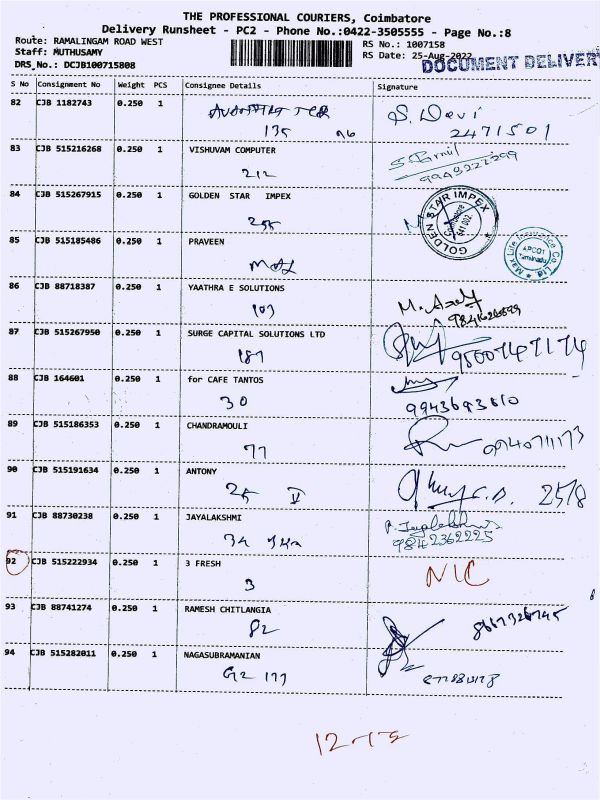 THE PROFESSIONAL COURIERS, Coimbatore
Delivery Runsheet - PC2 - Phone No.:0422-3505555 - Page No.:8
Route: RAMALINGAM ROAD WEST RS No.: 1007158
Staff: MUTHUSAMY RS Date: 25-Aug-2022
DRS No.: DCJB100715808 DOCUMENT DELIVERY
S No Consignment No Weight PCS Consignee Details Signature
82 CJB 1182743 0.250 1 S. Devi
135 2471501
83 CJB 515216268 0.250 1 VISHUVAM COMPUTER
212
84 CJB 515267915 0.250 1 GOLDEN STAR IMPEX GOLDEN STAR IMPEX Coimbatore 641 002
85 CJB 515185486 0.250 1 PRAVEEN
86 CJB 88718387 0.250 1 YAATHRA E SOLUTIONS
103
87 CJB 515267950 0.250 1 SURGE CAPITAL SOLUTIONS LTD
187 9500747174
88 CJB 164601 0.250 1 for CAFE TANTOS
30 9943693610
89 CJB 515186353 0.250 1 CHANDRAMOULI
77
90 CJB 515191634 0.250 1 ANTONY
25 II 25/8
91 CJB 88730238 0.250 1 JAYALAKSHMI
34 9842362225
92 CJB 515222934 0.250 1 3 FRESH NIC
3
93 CJB 88741274 0.250 1 RAMESH CHITLANGIA
82
94 CJB 515282011 0.250 1 NAGASUBRAMANIAN
G2 177